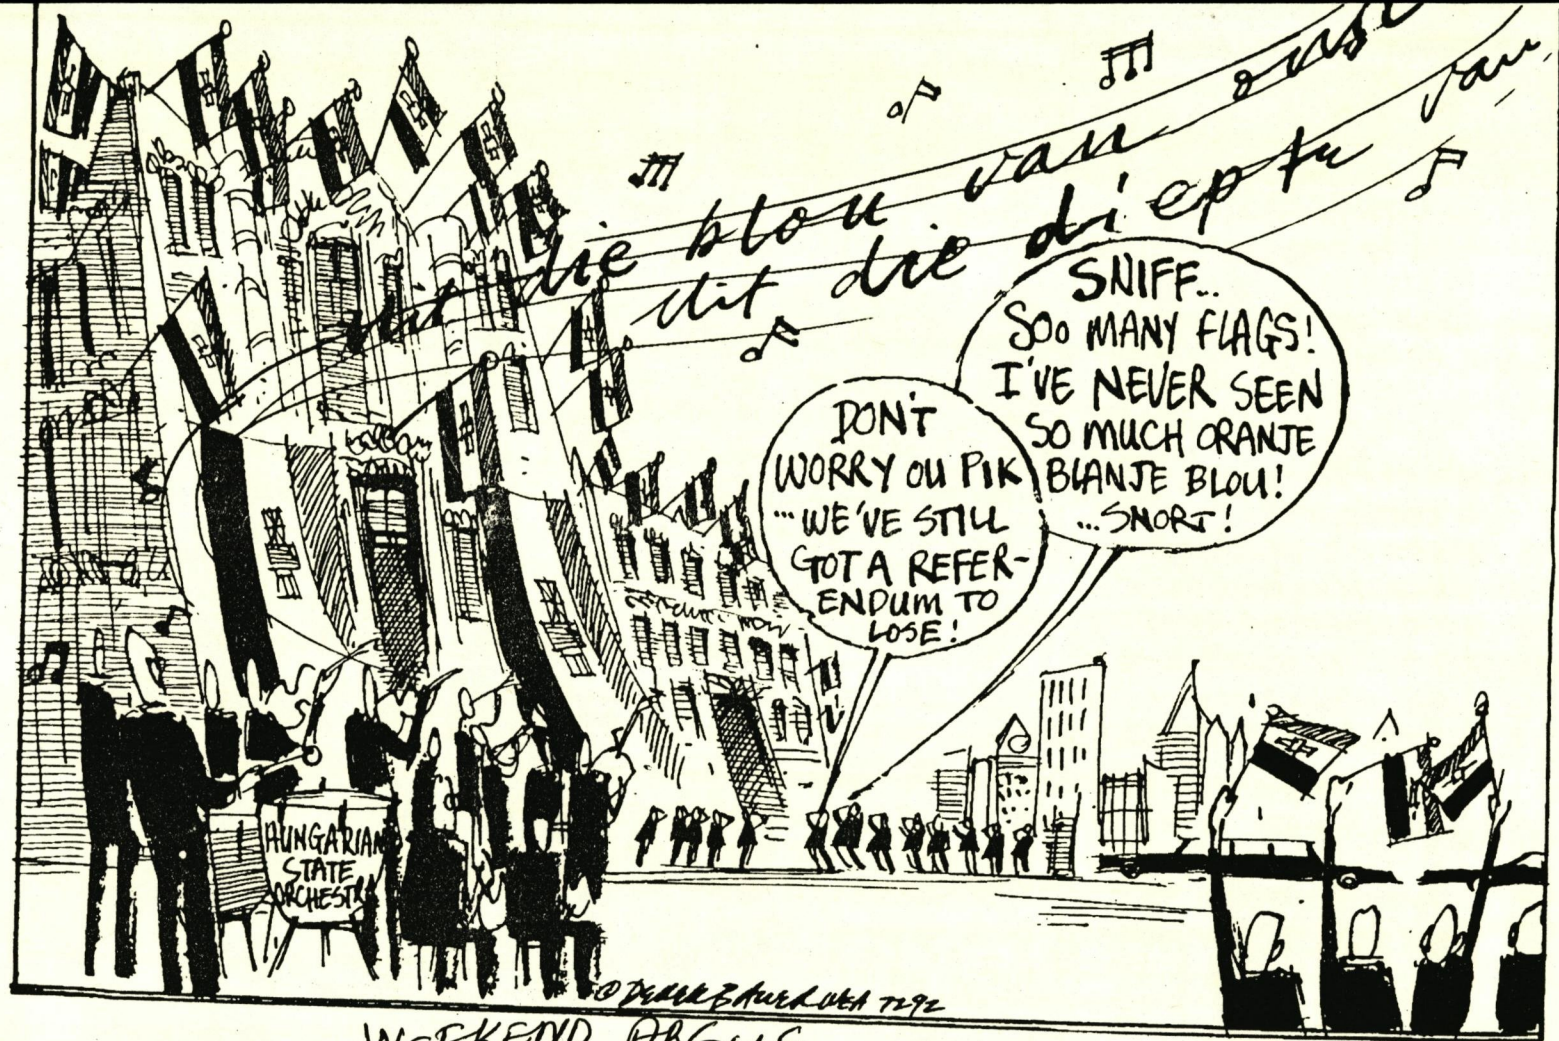 uit die blou van onse
uit die diepte van
SNIFF...
SOO MANY FLAGS!
I'VE NEVER SEEN
SO MUCH ORANJE
BLANJE BLOU!
...SNORT!
DON'T
WORRY OU PIK
...WE'VE STILL
GOT A REFER-
ENDUM TO
LOSE!
HUNGARIAN
STATE
ORCHESTRA
© DEREK BAUER WEA 7292
WEEKEND ARGUS